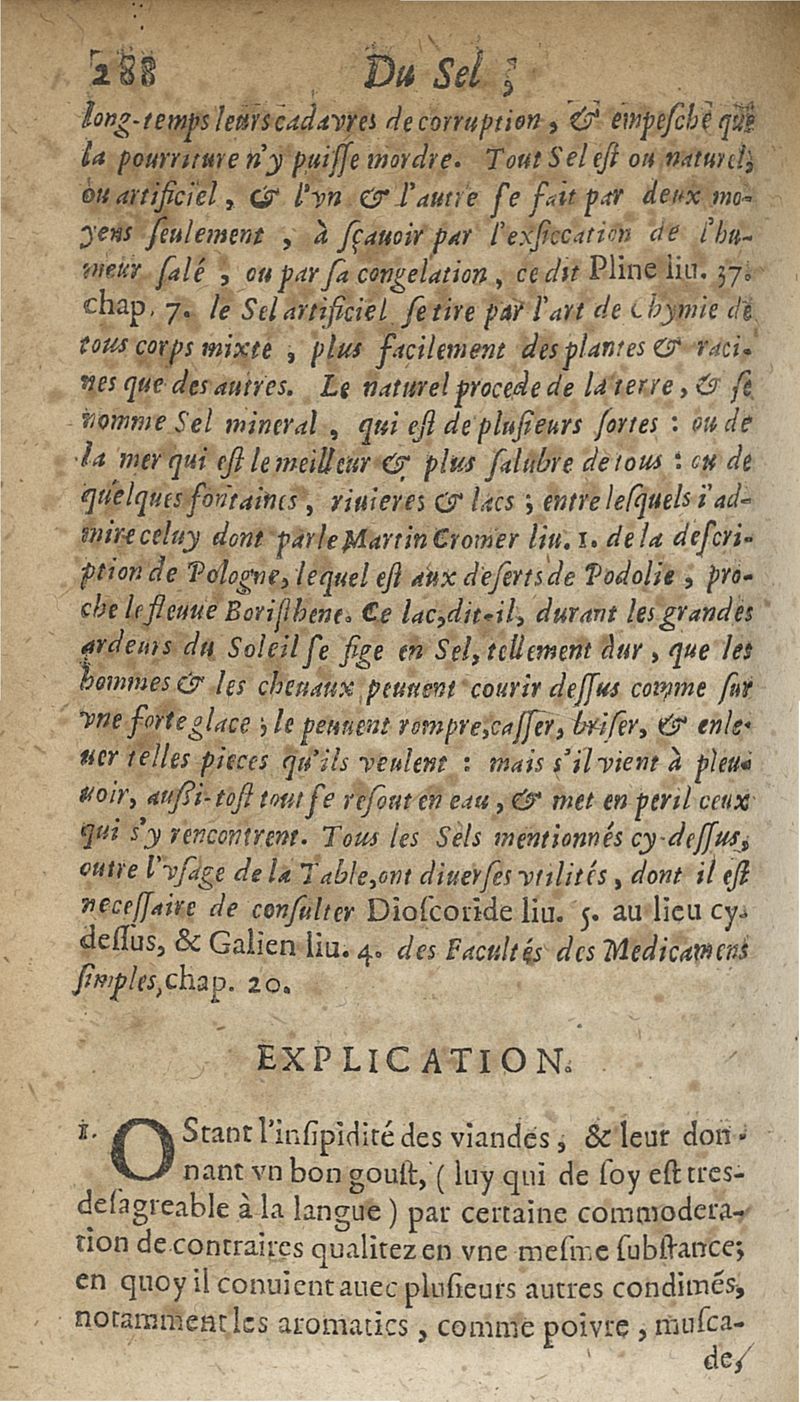 288 Du Sel,
long-temps leurs cadavres de corruption, & empeſche que
la pourriture n'y puiſſe mordre. Tout Sel eſt ou naturel,
ou artificiel, & l'vn & l'autre ſe fait par deux mo-
yens ſeulement, à ſçauoir par l'exſiccation de l'hu-
meur ſalé, ou par ſa congelation, ce dit Pline liu. 37.
chap. 7. le Sel artificiel ſe tire par l'art de Chymie de
tous corps mixte, plus facilement des plantes & raci-
nes que des autres. Le naturel procede de la terre, & ſe
nomme Sel mineral, qui eſt de pluſieurs ſortes : ou de
la mer qui eſt le meilleur & plus ſalubre de tous : ou de
quelques fontaines, riuieres & lacs ; entre leſquels i'ad-
mire celuy dont parle Martin Cromer liu. 1. de la deſcri-
ption de Pologne, lequel eſt aux deſerts de Podolie, pro-
che le fleuue Boriſthene. Ce lac, dit-il, durant les grandes
ardeurs du Soleil ſe fige en Sel, tellement dur, que les
hommes & les cheuaux peuuent courir deſſus comme ſur
vne forte glace ; le peuuent rompre, caſſer, briſer, & enle-
uer telles pieces qu'ils veulent : mais s'il vient à pleu-
uoir, auſſi-toſt tout ſe reſout en eau, & met en peril ceux
qui s'y rencontrent. Tous les Sels mentionnés cy-deſſus,
outre l'vſage de la Table, ont diuerſes vtilités, dont il eſt
neceſſaire de conſulter Dioſcoride liu. 5. au lieu cy-
deſſus, & Galien liu. 4. des Facultés des Medicamens
ſimples, chap. 20.
EXPLICATION.
1. OStant l'inſipidité des viandes, & leur don-
nant vn bon gouſt, (luy qui de ſoy eſt tres-
deſagreable à la langue) par certaine commodera-
tion de contraires qualitez en vne meſme ſubſtance;
en quoy il conuient auec pluſieurs autres condimés,
notamment les aromatics, comme poivre, muſca-
de,